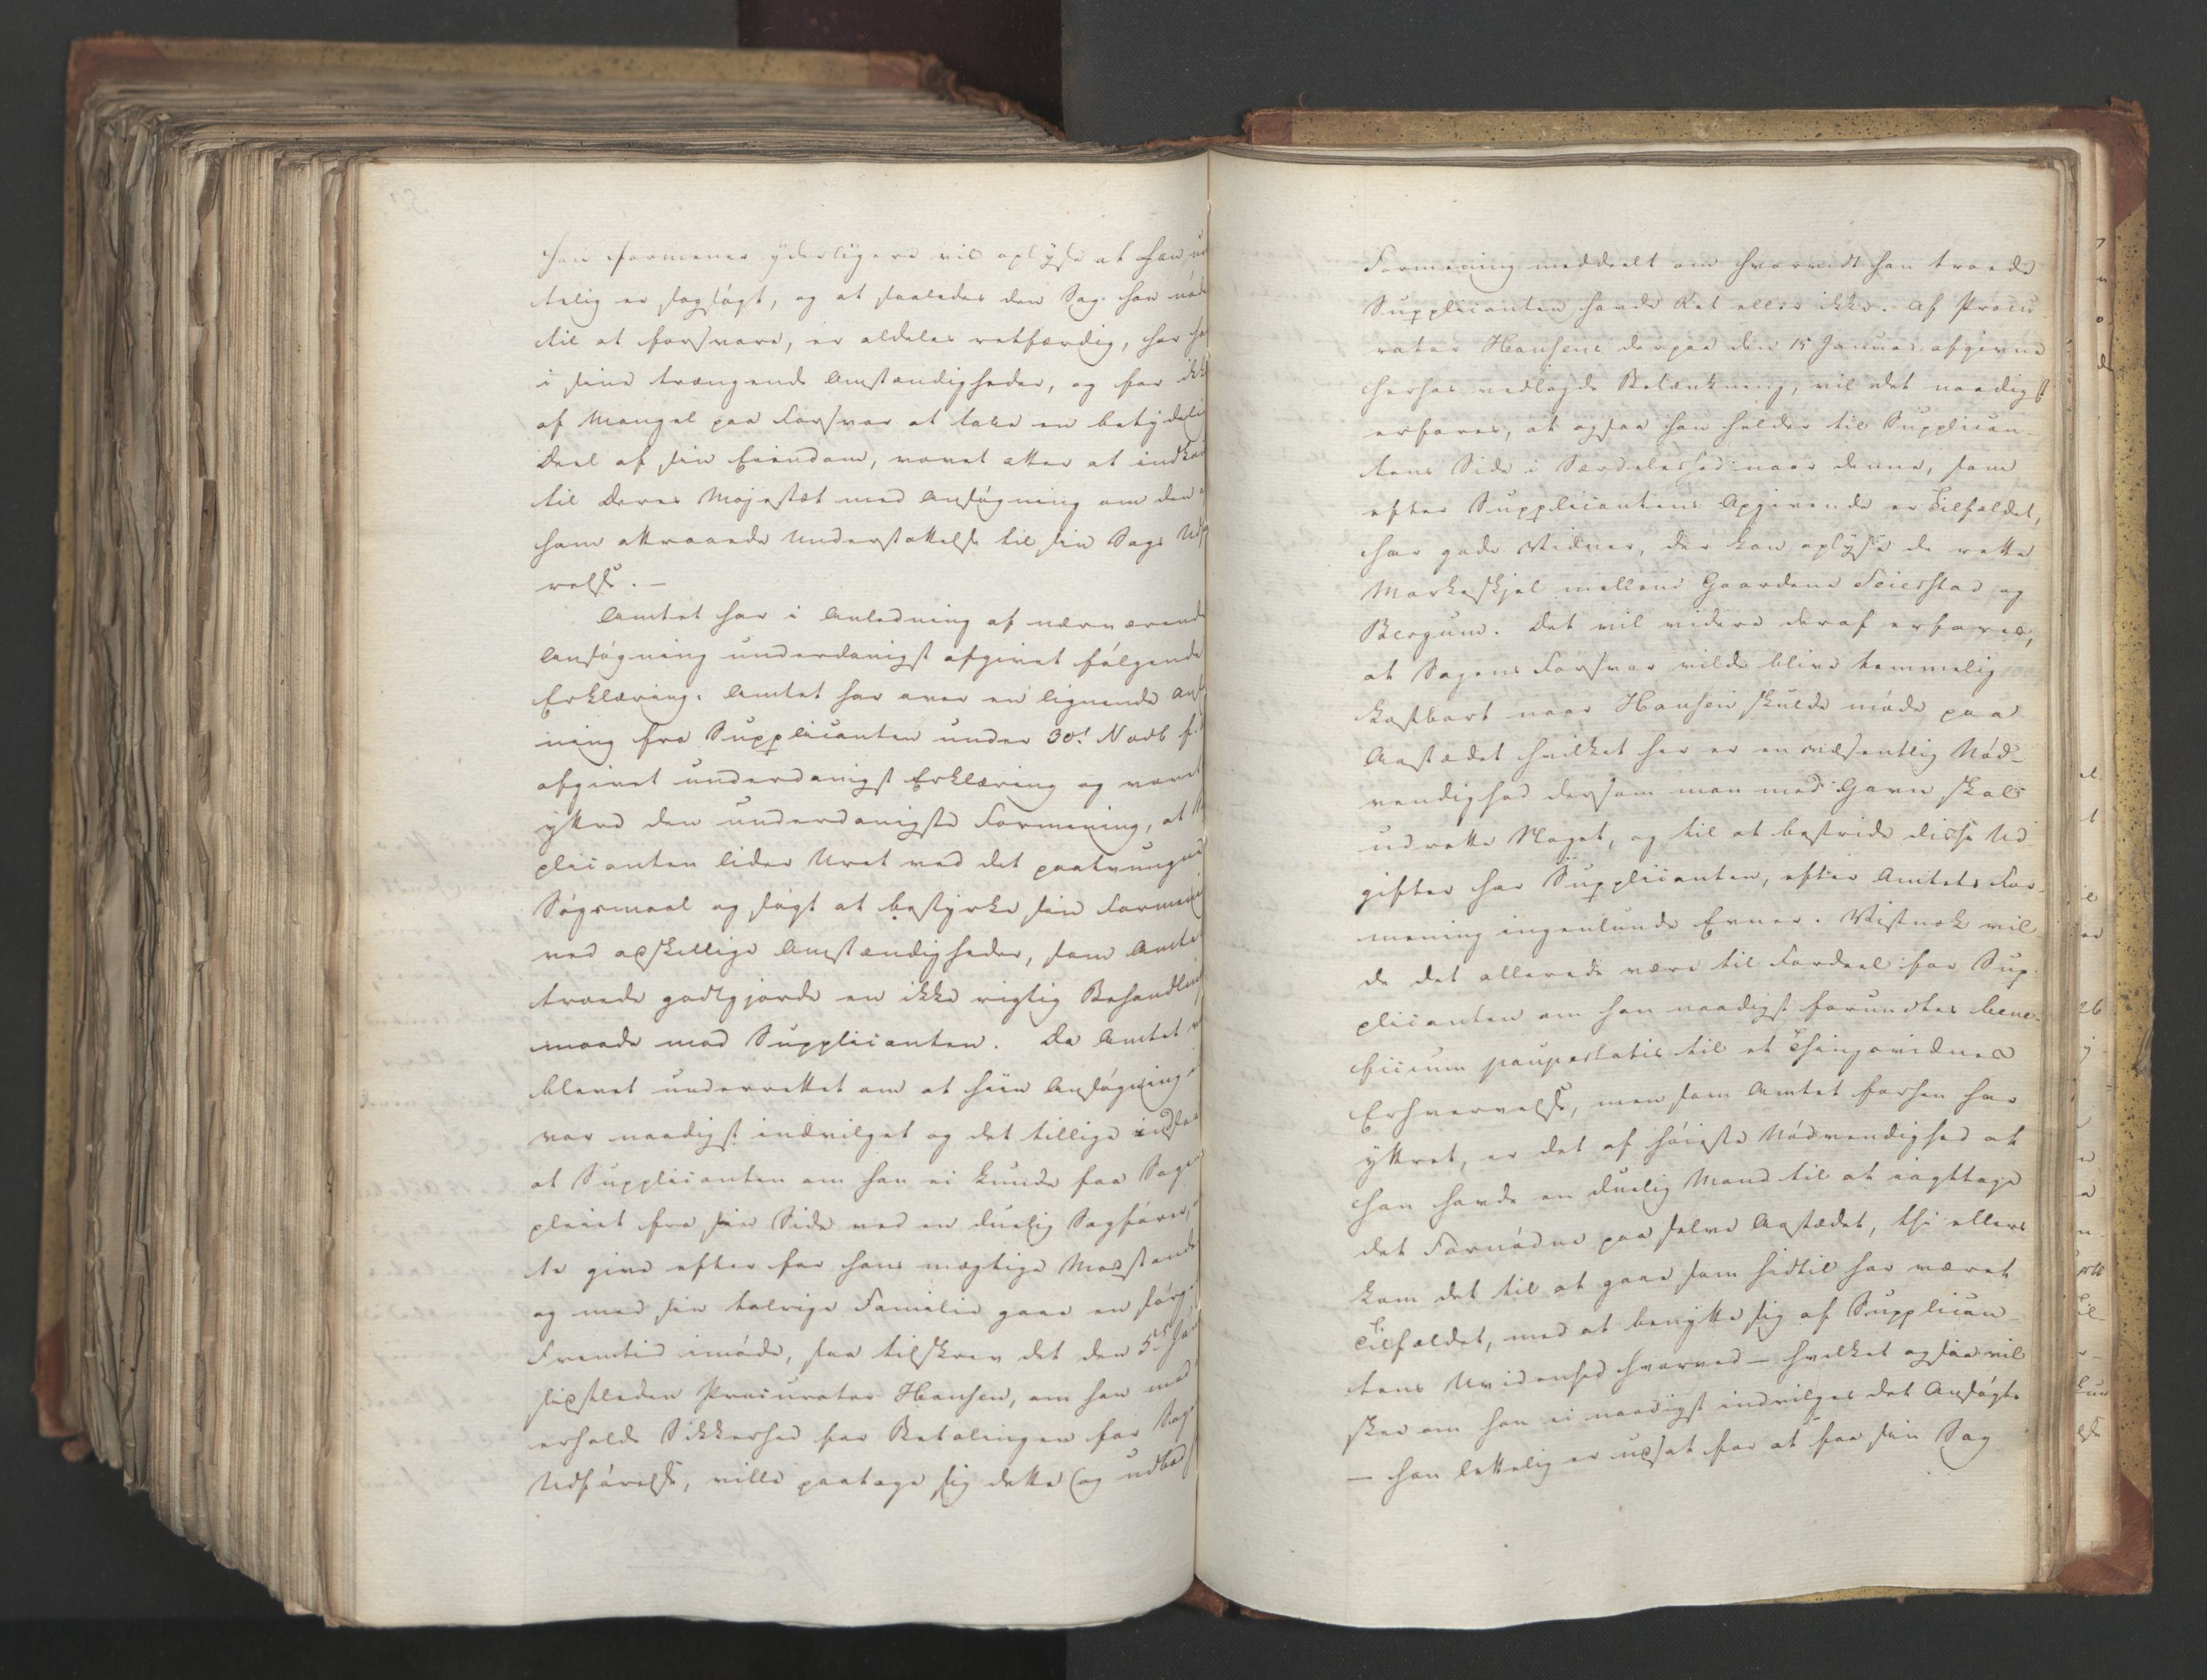 han formener yderligere vil oplyse at han
telig er sagsøgt, og at saaledes den Sag han
til at forsvare, er aldeles retfærdig, har
i sine trængende Omstændigheder, og for
af Mangel paa Forsvar at tabe en betydeli
Deel af sin Eiendom, vovet atter at
til Deres Majestæt med Ansøgning om den
ham attraaede Understøttelse til sin Sags
relse. –
Amtet har i Anledning af nærværende
Ansøgning underdanigst afgivet følgende
Erklæring: Amtet har over en lignende
ning fra Supplicanten under 30t Novb f.
afgivet underdanigst Erklæring og
yttre den underdanigste Formening, at
plicanten lider Uret ved det paatvungne
Søgsmaal og søgt at bestyrke sin Formeni
ved adskillige Omstændigheder, som Amte
troede godtgjorde en ikke rigtig Behandlings
maade mod Supplicanten. Da Amtet
blevet underrettet om at hiin Ansøgning
var naadigst indvilget og det tillige
at Supplicanten om han ei kunde faa Sage
pleiet fra sin Side ved en duelig Sagfører,
te give efter for hans mægtige Modstande
og med sin talrige Familie gaae en sørge
Fremtid imøde, saa tilskrev det den 5t Jan
sidstleden Procurator Hansen, om han mod
erholde Sikkerhed for Betalingen for Sage
Udførelse, ville paatage sig dette (og udbad
Formening meddeelt om hvorvidt han troede
Supplicanten havde Ret eller ikke. Af Procu
rator Hansens derpaa den 15 Januar afgivne
herhos vedlagde Betænkning, vil det naadigst
erfares, at ogsaa han helder til Supplican-
tens Side i Særdeleshed naar denne, som
efter Supplicantens Opgivende er Tilfældet,
har gode Vidner, der kan oplyse de rette
Markeskjel mellem Gaardene Seierstad og
Bergum. Det vil videre deraf erfares,
at Sagens Forsvar vilde blive temmelig
kostbart naar Hansen skulde møde paa
Aastædet hvilket her er en væsentlig Nød-
vendighed dersom man med Gavn skal
udrette Noget, og til at bestride disse Ud
gifter har Supplicanten, efter Amtets For-
mening ingenlunde Evner. Vistnok vil-
de det allerede være til Fordeel for Sup-
plicanten om han naadigst forundtes bene-
ficium paupertatis til et Thingsvidnes
Erhvervelse, men som Amtet forhen har
yttret, er det af høieste Nødvendighed at
han havde en duelig Mand til at iagttage
det Fornødne paa selve Aastædet, thi ellers
kom det til at gaae som hidtil har været
Tilfældet, med at benytte sig af Supplican-
tens Uvidenhed hvorved – hvilket ogsaa vil
skee om han ei naadigst indvilges det Ansøgte
– han lettelig er udsat for at faa sin Sag